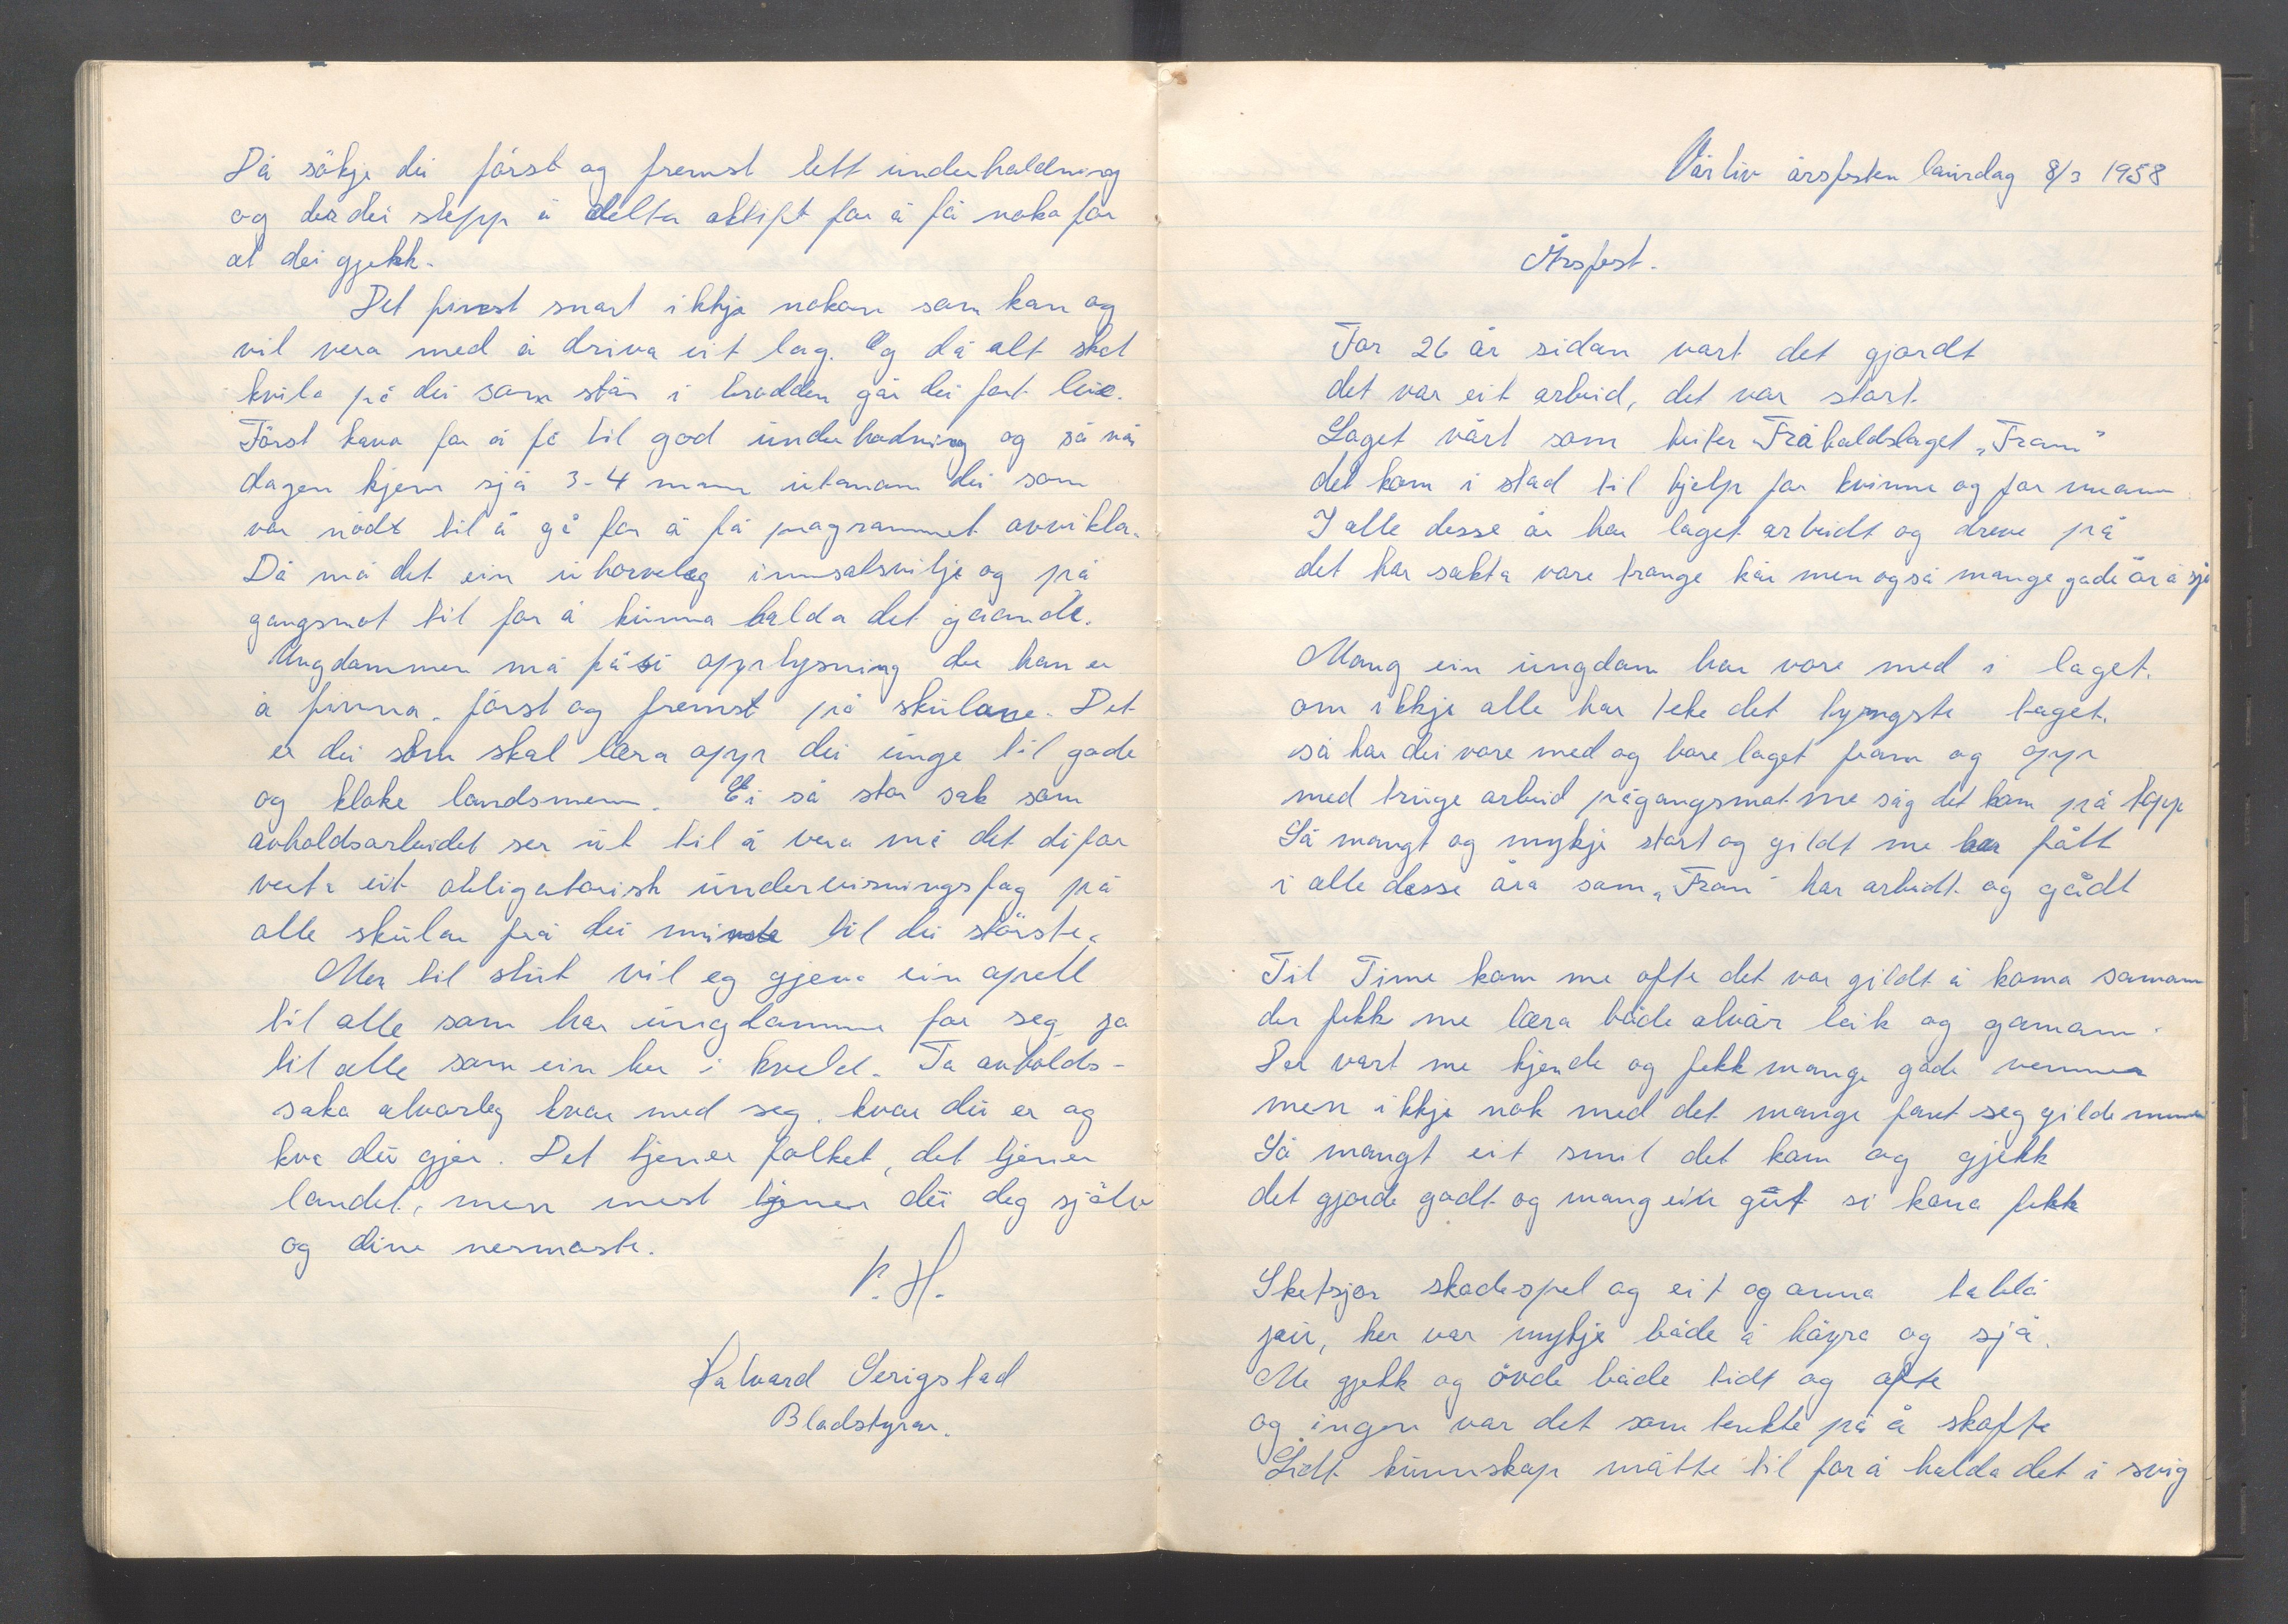 Då sökje dei först og fremst lett underhaldning
og der dei slepp å delta aktift for å få noko for
at dei gjekk.
Det finst snart ikkje nokon som kan og
vil vera med å driva eit lag. Og då alt skal
kvila på dei som står i brodden går dei fort leie.
Först kava for å få til god underhadning og så når
dagen kjem sjå 3-4 mann utanom dei som
var nödt til å gå for å få programmet avvikla.
Då må det ein uhorveleg innsatsvilje og på
gangsmot til for å kunna halda det gåande.
Ungdommen må få si opplysning der han er
å finna. först og fremst på skulane. Det
er dei som skal læra opp dei unge til gode
og kloke landsmenn. Ei så stor sak som
avholdsarbeidet ser ut til å vera må det difor
verta eit obligatorisk undervisningsfag på
alle skular frå dei minste til dei störste.
Men til slut vil eg gjeva ein apell
til alle som har ungdommen for seg ja
til alle som ein her i kveld. Ta avholds-
saka alvorleg kvar med seg. kvar du er og
kva du gjer. Det tjener folket, det tjener
landet, men mest tjener du deg sjölv
og dine nermaste.
P. H.
Halvard Serigstad
Bladstyrar.
Vårliv årsfesten laurdag 8/3 1958
Årsfest.
For 26 år sidan vart det gjordt
det var eit arbeid, det var stort.
Laget vårt som heiter Fråhaldslaget „Fram"
det kom i stad til hjelp for kvinne og for mann
I alle desse år har laget arbeidt og dreve på
det har sakta vore trange kår men også mange gode år å sjå
Mang ein ungdom har vore med i laget.
om ikkje alle har teke det tyngste taget.
så har dei vore med og bore laget fram og opp
med truge arbeid pågangsmot me såg det kom på topp
Så mangt og mykje stort og gildt me har fått
i alle desse åra som „Fram" har arbeidt og gådt
Til Time kom me ofte det var gildt å koma samam
der fekk me læra både alvår leik og gamam.
Der vart me kjende og fekk mange gode venner
men ikkje nok med det mange fant seg gilde
Så mangt eit smil det kom og gjekk
det gjorde godt og mang ein gut si kona fekk
Sketsjar skodespel og eit og anna tablå
jau, her var mykje både å höyra og sjå.
Me gjekk og övde både tidt og ofte
og ingen var det som tenkte på å skofte
Lidt kunnskap måtte til for å halda det i svig